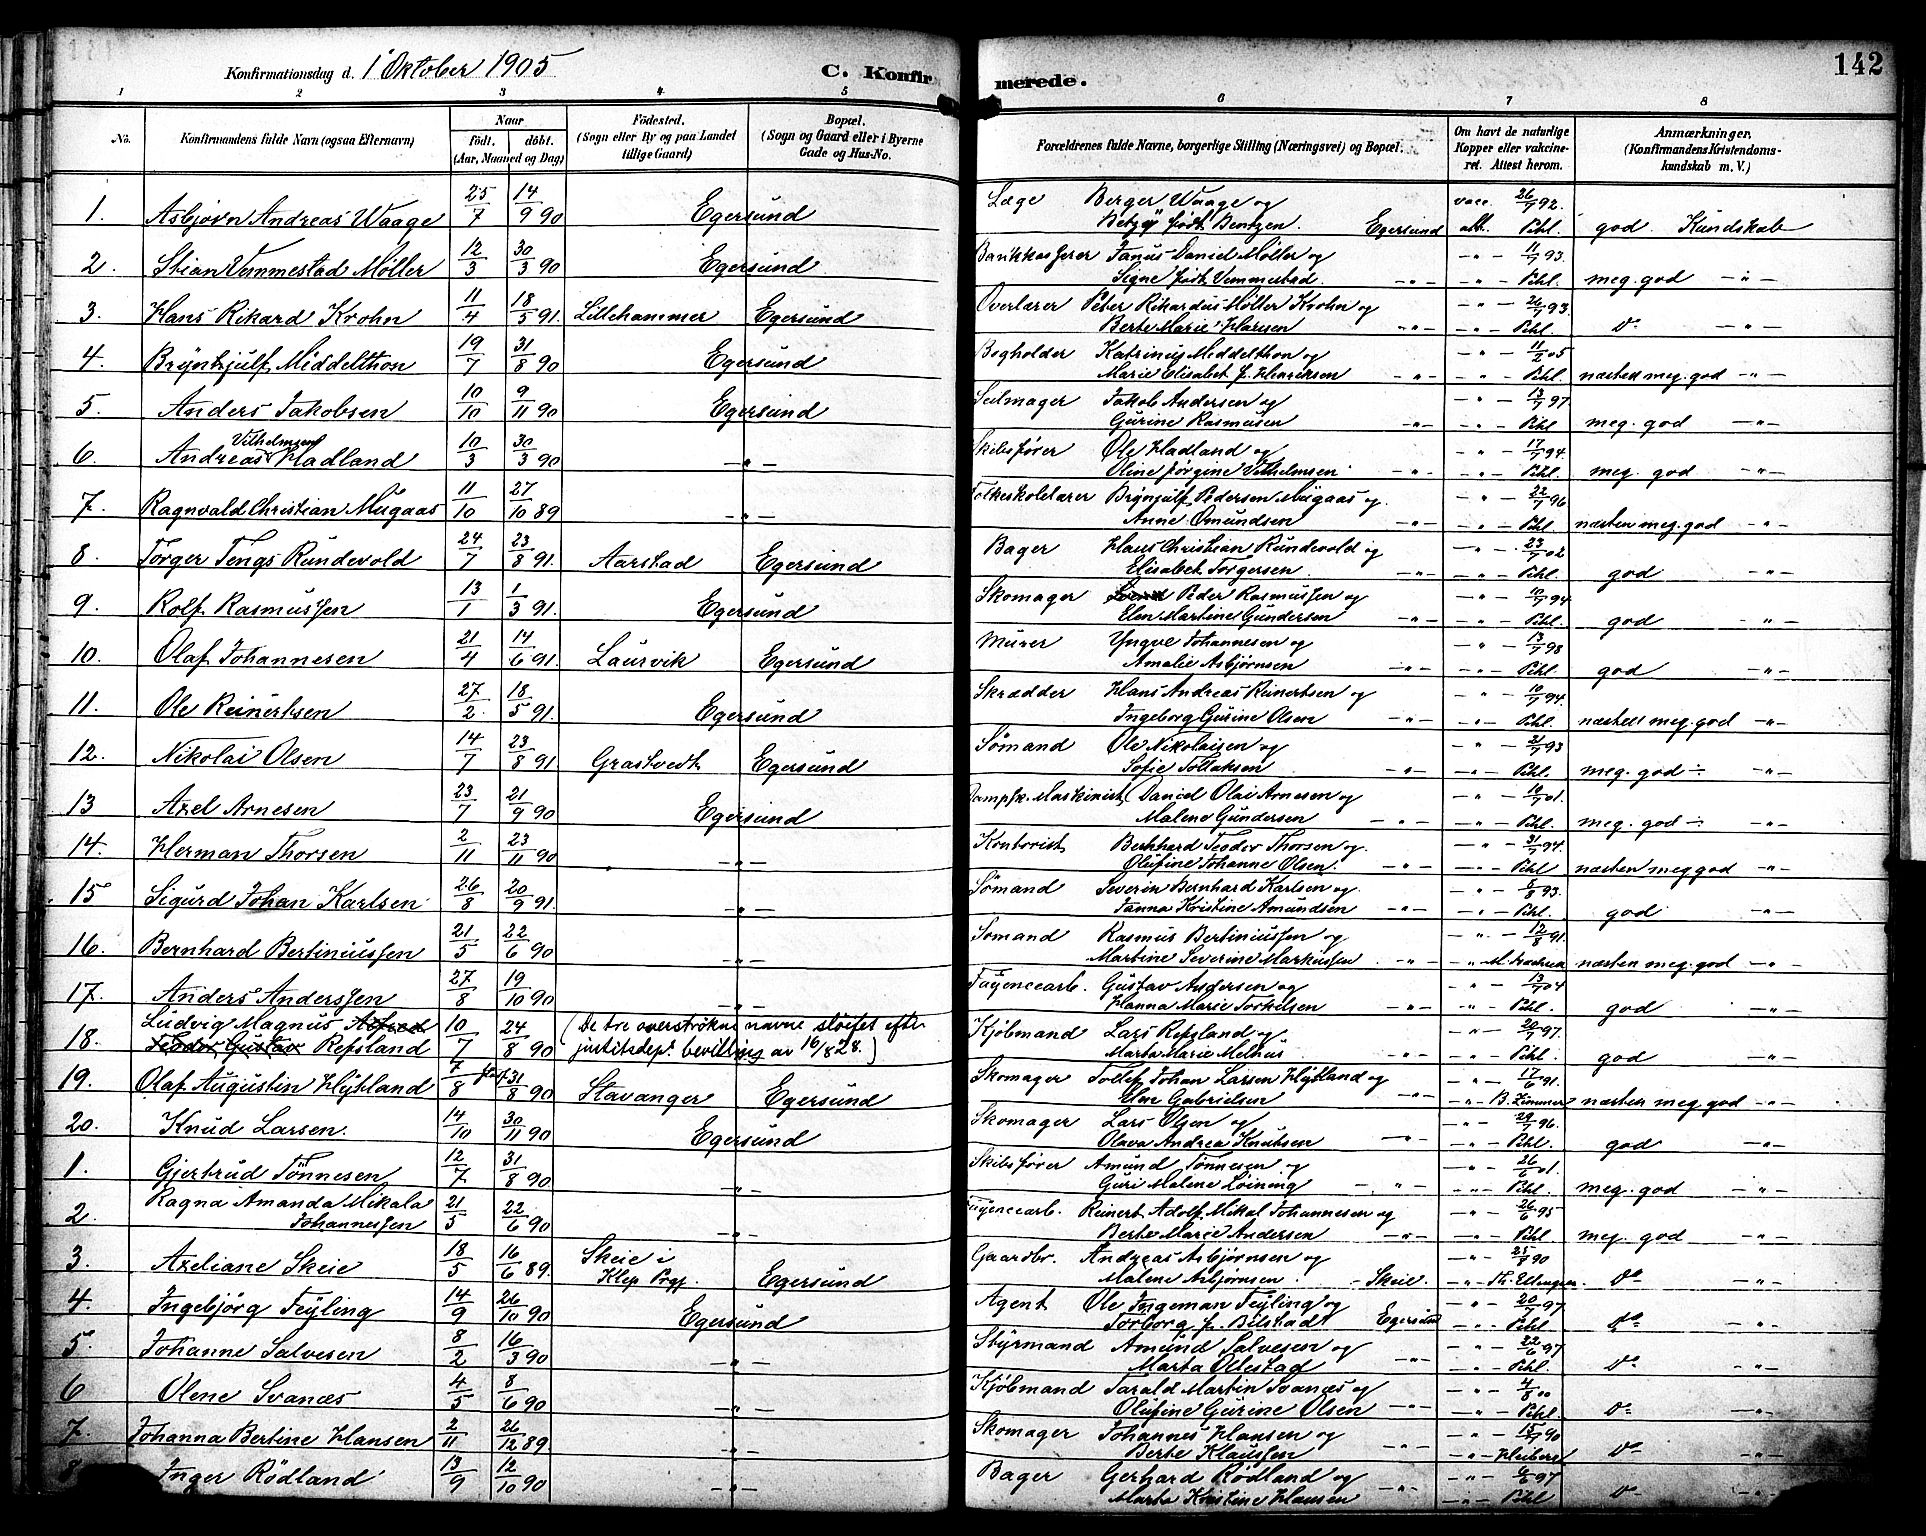 142
Konfirmationsdag d. 1 Oktober 1905 C. Konfirmerede.
1 2 3 4 5 6 7 8
No. Konfirmandens fulde Navn (ogsaa Efternavn) Naar født. døbt. (Aar, Maaned og Dag) Fødested. (Sogn eller By og paa Landet tillige Gaard) Bopæl. (Sogn og Gaard eller i Byerne Gade og Hus-No. Forældrenes fulde Navne, borgerlige Stilling (Næringsvei) og Bopæl. Om havt de naturlige Kopper eller vakcineret. Attest herom. Anmærkninger. (Konfirmandens Kristendomskundskab m. V.)
1. Asbjørn Andreas Waage 25/7 14/9 90 Egersund Læge Berger Waage og vacc. 26/7 92.
Betzy født Bentzen. Egersund att. Pihl. god Kundskab
2. Stian Vemmestad Møller 12/3 30/3 90 Egersund Bankkasserer Janus Daniel Møller og -"- 11/7 93.
Signe født Vemmestad. -"- -"- Pihl. meg. god -"-
3. Hans Rikard Krohn 11/4 18/5 91. Lillehammer Egersund Overlærer Peter Rikardus Møller Krohn og -"- 26/7 93.
Berte Marie Hansen -"- -"- Pihl. Do -"-
4. Brynhjulf Middelthon 19/7 31/8 90 Egersund Bogholder Katrinus Middelthon og -"- 11/2 05
Marie Elisabet f. Henriksen -"- -"- Pihl. næsten meg. god -"-
5. Anders Jakobsen 10/10 9/11 90 Egersund Seilmager Jakob Andersen og -"- 13/7 97.
Gurine Rasmusen -"- -"- Pihl meg. god -"-
6. Andreas Vilhelmsen Hadland 10/3 30/3 90 -"- Skibsfører Ole Hadland og -"- 17/7 94.
Oline Jørgine Vilhelmsen -"- -"- Pihl. meg. god -"-
7. Ragnvald Christian Mugaas 11/10 27/10 89 -"- Folkeskolelærer Brynjulf Pedersen Mugaas og -"- 22/7 96
Anne Omundsen -"- -"- Pihl. næsten meg. god -"-
8. Torger Tengs Rundevold 24/7 23/8 91. Aarstad Egersund Bager Hans Christian Rundevold og -"- 23/7 02
Elisabet Torgersen -"- -"- Pihl. god -"-
9. Rolf Rasmussen 13/1 1/3 91. Egersund Skomager Peder Rasmussen og -"- 10/7 94
Elen Martine Gundersen -"- -"- Pihl. god -"-
10. Olaf Johannesen 21/4 14/6 91. Laurvik Egersund Murer Yngve Johannesen og -"- 13/7 98
Amalie Asbjørnsen -"- -"- Pihl. god -"-
11. Ole Reinertsen 27/2 18/5 91. Egersund Skrædder Hans Andreas Reinertsen og -"- 10/7 94.
Ingeborg Gurine Olsen -"- -"- Pihl. næsten meg. god -"-
12. Nikolai Olsen 14/7 23/8 91 Grastvedt Egersund Sømand Ole Nikolaisen og -"- 21/7 93
Sofie Tollaksen -"- -"- Pihl. meg. god ÷ -"-
13 Axel Arnesen 23/7 21/9 90 Egersund Dampsk. Maskinist Daniel Olai Arnesen og -"- 10/7 01.
Malene Gundersen -"- -"- Pihl. meg. god ÷ -"-
14. Herman Thorsen 2/11 23/11 90 -"- Kontorist Bernhard Teodor Thorsen og -"- 31/7 94.
Olufine Johanne Olsen. -"- -"- Pihl næsten meg god -"-
15 Sigurd Johan Karlsen 26/8 20/9 91. -"- Sømand Severin Bernhard Karlsen og -"- 5/8 93.
Janna Kristine Amundsen -"- -"- Pihl. god -"-
16. Bernhard Bertiniussen 21/5 22/6 90 -"- Sømand Rasmus Bertiniussen og -"- 12/8 91.
Martine Severine Markussen -"- -"- næsten meg. god -"-
17. Anders Anderssen 27/8 19/10 90 -"- Fayencearb. Gustav Andersen og -"- 13/7 04
Hanna Marie Torkilsen -"- -"- Pihl. god -"-
18. Ludvig Magnus Alfred 10/7 24/8 90 (De tre overstrøkne navne sløifet efter Kjøbmand Lars Refsland og -"- 20/7 97.
Teodor Gustav Refsland justitsdept bevilling av 16/8 28.) Marta Marie Melhus -"- -"- Pihl. god -"-
19. Olaf Augustin Hytland 7/8 31/8 90 Stavanger Egersund Skomager Tollef Johan Larsen Hytland og -"- 17/6 91.
Elen Gabrielsen -"- -"- B. Zimmer næsten meg. god -"-
20. Knud Larsen. 14/10 30/11 90 Egersund Skomager Lars Olsen og -"- 29/7 96.
Olava Andrea Knutsen -"- -"- Pihl. god -"-
1. Gjertrud Tönnesen 12/7 31/8 90 -"- Skibsfører Amund Tønnesen og -"- 26/6 01.
Guri Malene Løining -"- -"- Pihl. meg. god -"-
2. Ragna Amanda Mikala 21/5 22/6 90 -"- Fayencearb. Reinert Adolf Mikal Johannesen og -"- 26/6 95
Johannessen Berte Marie Andersen -"- -"- Pihl meg. god -"-
3. Axeliane Skeie 18/5 16/6 89. Skeie i Klep Prgj. Egersund Gaardbr. Andreas Asbjørnsen og -"- 25/8 90
Malene Asbjørnsen - Skeie. -"- Do -"-
4. Ingebjörg Feyling 14/9 26/10 90 Egersund Agent Ole Ingeman Feyling og -"- 20/7 97.
Torborg f. Bilstad Egersund -"- Pihl Do -"-
5. Johanne Salvesen 8/2 16/3 90 -"- Styrmand Amund Salvesen og -"- 22/6 97
Marta Ollestad -"- -"- Pihl. Do -"-
6 Olene Svanæs 4/5 8/6 90 -"- Kjøbmand Tarald Martin Svanæs og -"- 4/8 00
Olufine Gurine Olsen -"- -"- Pihl. Do -"-
7. Johanna Bertine Hansen 2/11 26/12 89 -"- Skomager Johannes Hansen og -"- 15/7 90
Berte Klaussen -"- -"- Kleiberg Do -"-
8 Inger Rödland 13/9 12/10 90 -"- Bager Gerhard Rödland og -"- 6/6 97
Marta Kristine Hansen -"- -"- Pihl Do -"-